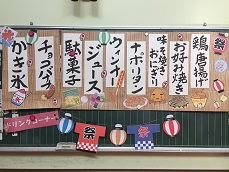 鶏唐揚げ
お好み焼き
味そ焼き
おにぎり
ナポリタン
ウィンナー
ジュース
駄菓子
チョコバナナ
かき氷
ドリンクコーナー
祭
祭
祭